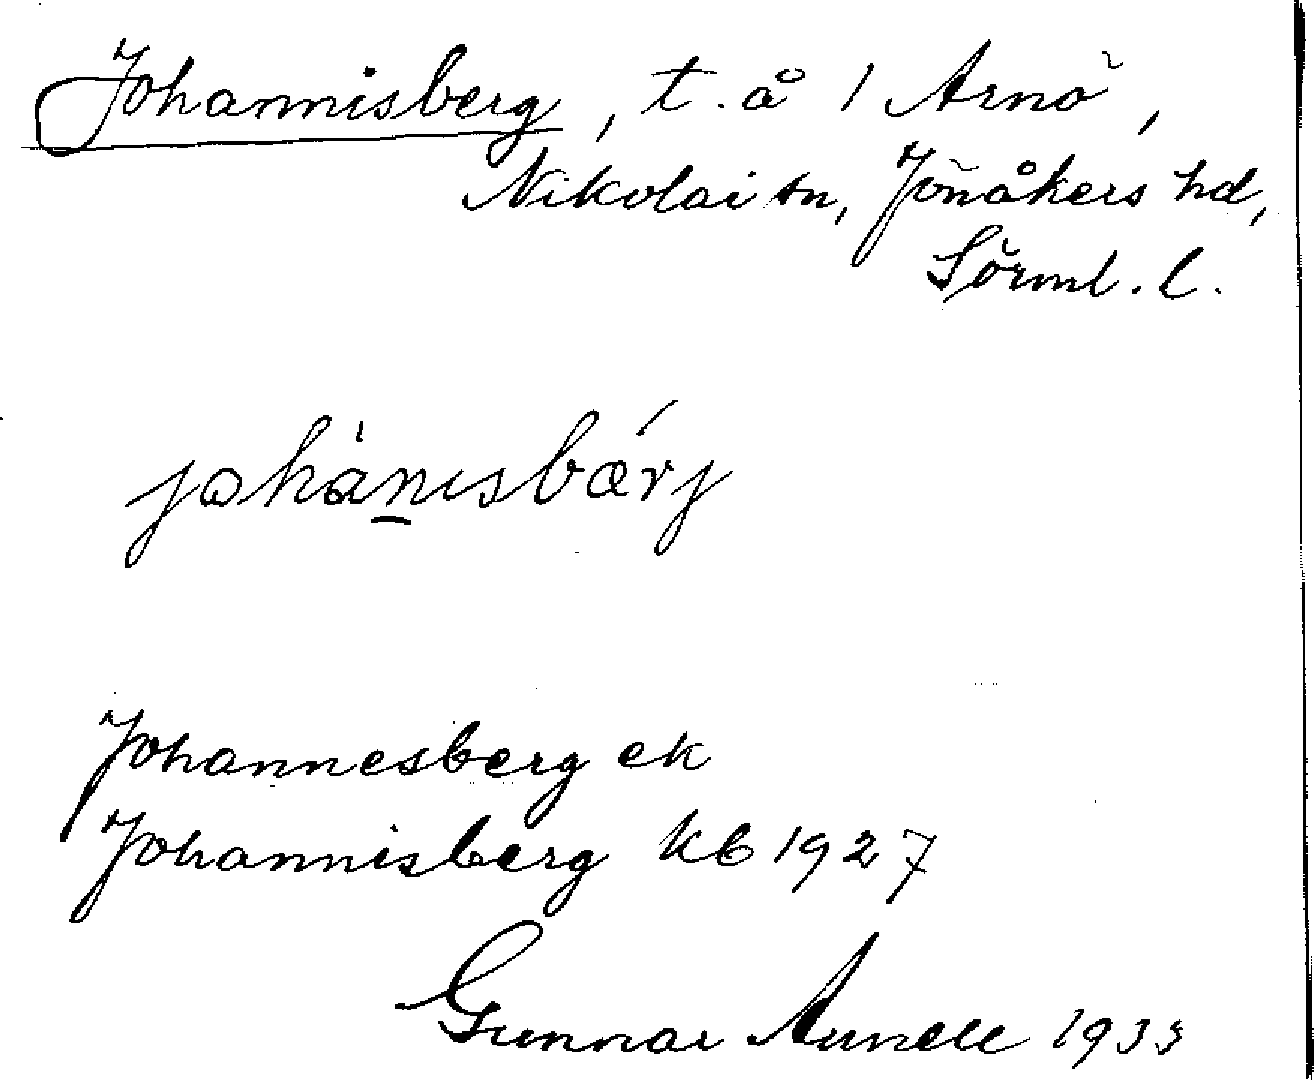 Johannisberg, t. å 1 Arnö,
Nikolai sn, Jönåkers hd,
Sörml. l.
johànisbǽrj
Johannesberg ek
Johannisberg kb 1927
Gunnar Aunell 1933